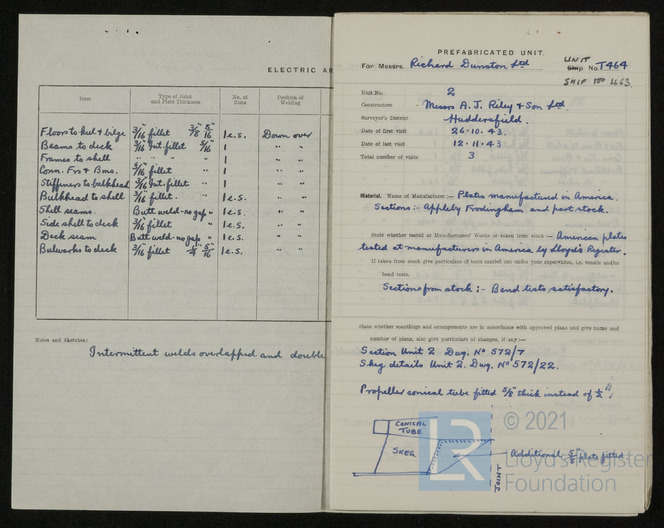 ELECTRIC AR
Item Type of Joint and Plate Thickness No. of Runs Position of Welding
Floors to keel & bilge 3/16" fillet 3/8" 5/16" 1 e.s. Down over
Beams to deck 3/16" Int. fillet 5/16" 1 " "
Frames to shell " " " " 1 " "
Conn. Frs & Bms. 5/16" fillet " 1 " "
Stiffeners to bulkhead 3/16" Int. fillet " 1 " "
Bulkhead to shell 3/16" fillet " 1 e.s. " "
Shell seams. Butt weld - no gap " 1 e.s. " "
Side shell to deck 3/16" fillet " 1 e.s. " "
Deck seam Butt weld - no gap " 1 e.s. " "
Bulworks to deck 3/16" fillet 1/4" 5/16" 1 e.s. " "
Notes and Sketches:
Intermittent welds overlapped and double
PREFABRICATED UNIT.
For Messrs. Richard Dunston Ltd UNIT Ship No. T464
SHIP NO 463.
Unit No. 2
Constructors Messrs A. J. Riley & Son Ltd.
Surveyor's District Huddersfield.
Date of first visit 26.10.43.
Date of last visit 12.11.43.
Total number of visits 3
Material. Name of Manufacturer :— Plates manufactured in America.
Sections:- Appleby Frodingham and part stock.
State whether tested at Manufacturers' Works or taken from stock :— American plates
tested at manufacturers in America by Lloyd's Register.
If taken from stock give particulars of tests carried out under your supervision, i.e. tensile and/or
bend tests.
Sections from stock :- Bend tests satisfactory.
State whether scantlings and arrangements are in accordance with approved plans and give name and
number of plans, also give particulars of changes, if any :—
Section Unit 2 Dwg. No 572/7
Skeg details Unit 2. Dwg. No 572/22.
Propeller conical tube fitted 5/8" thick instead of 1/2".
CONICAL
TUBE
SKEG
Additional plate fitted
JOINT
LR
© 2021
Lloyd's Register
Foundation